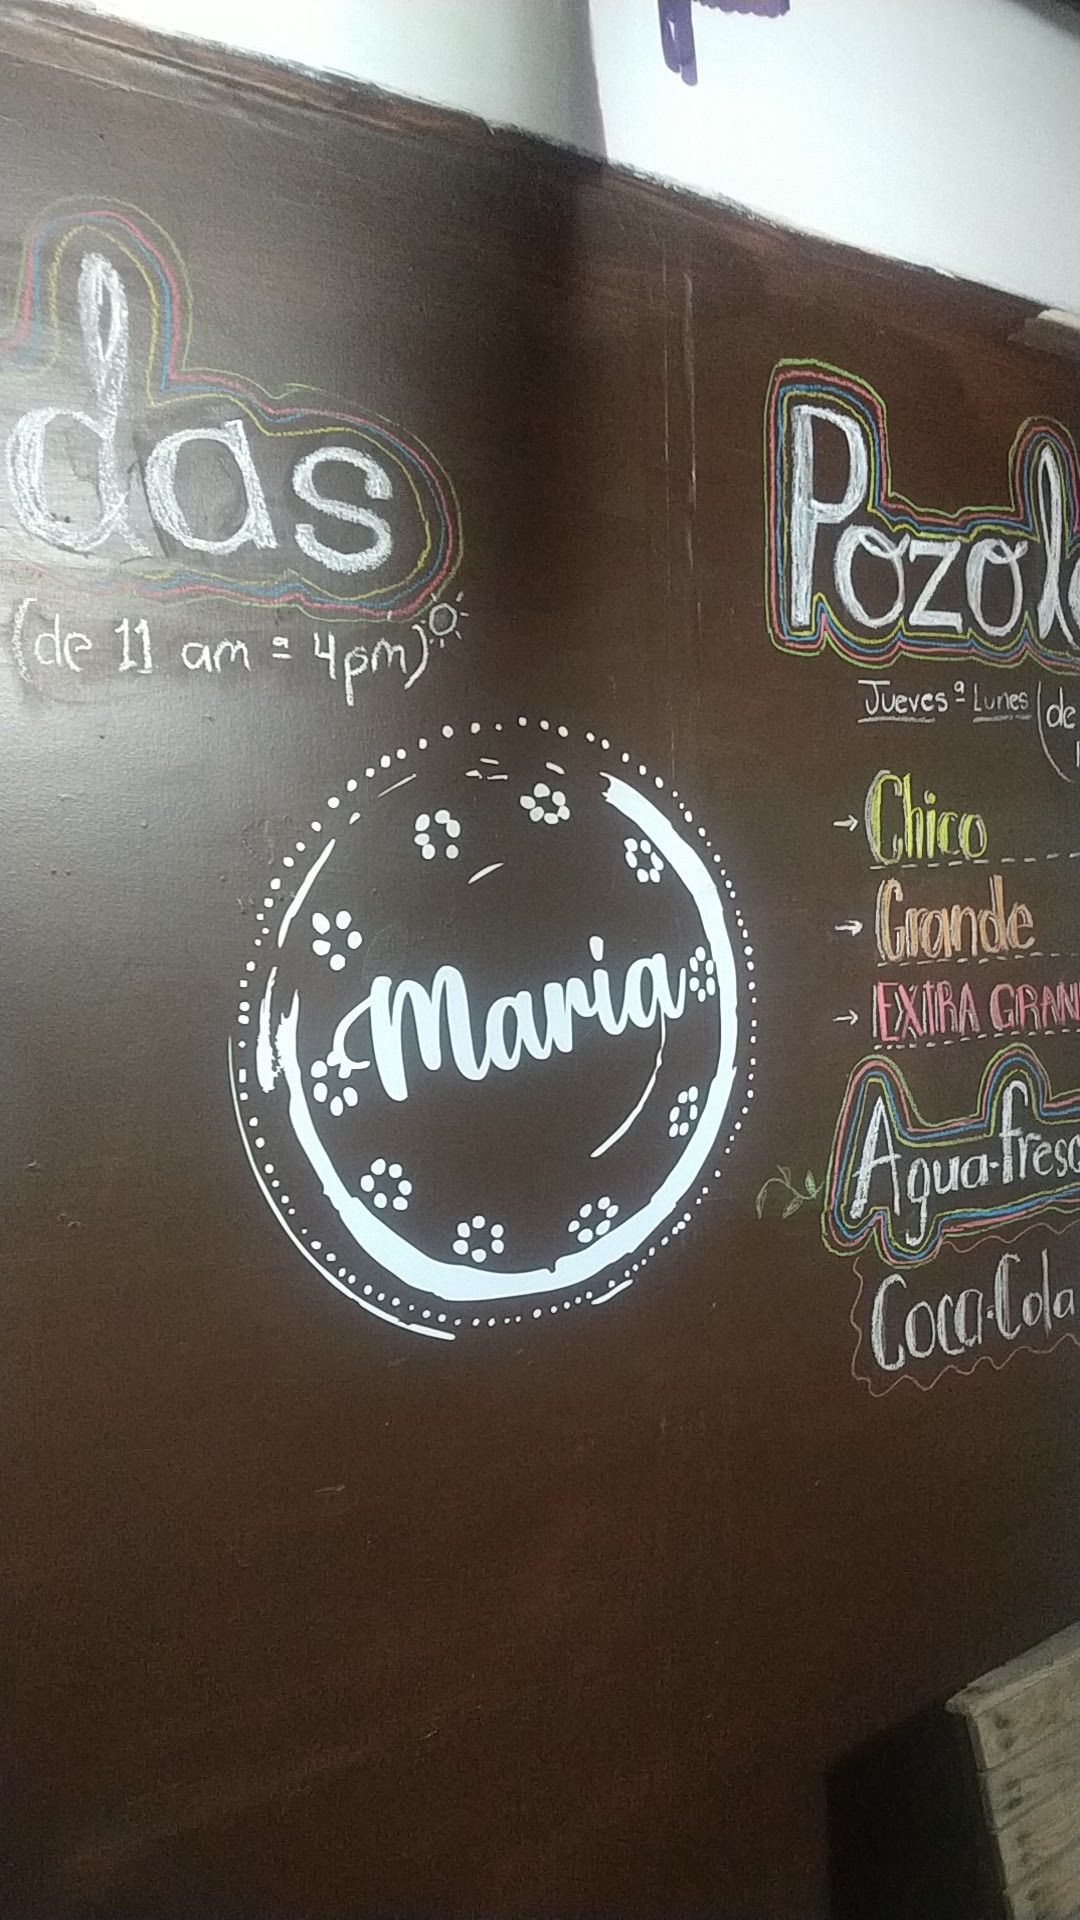 das
(de 11 am a 4pm)
Maria
Pozol
Jueves a Lunes (de
Chico
Grande
EXTRA GRAN
Agua-fresc
Coca-Cola